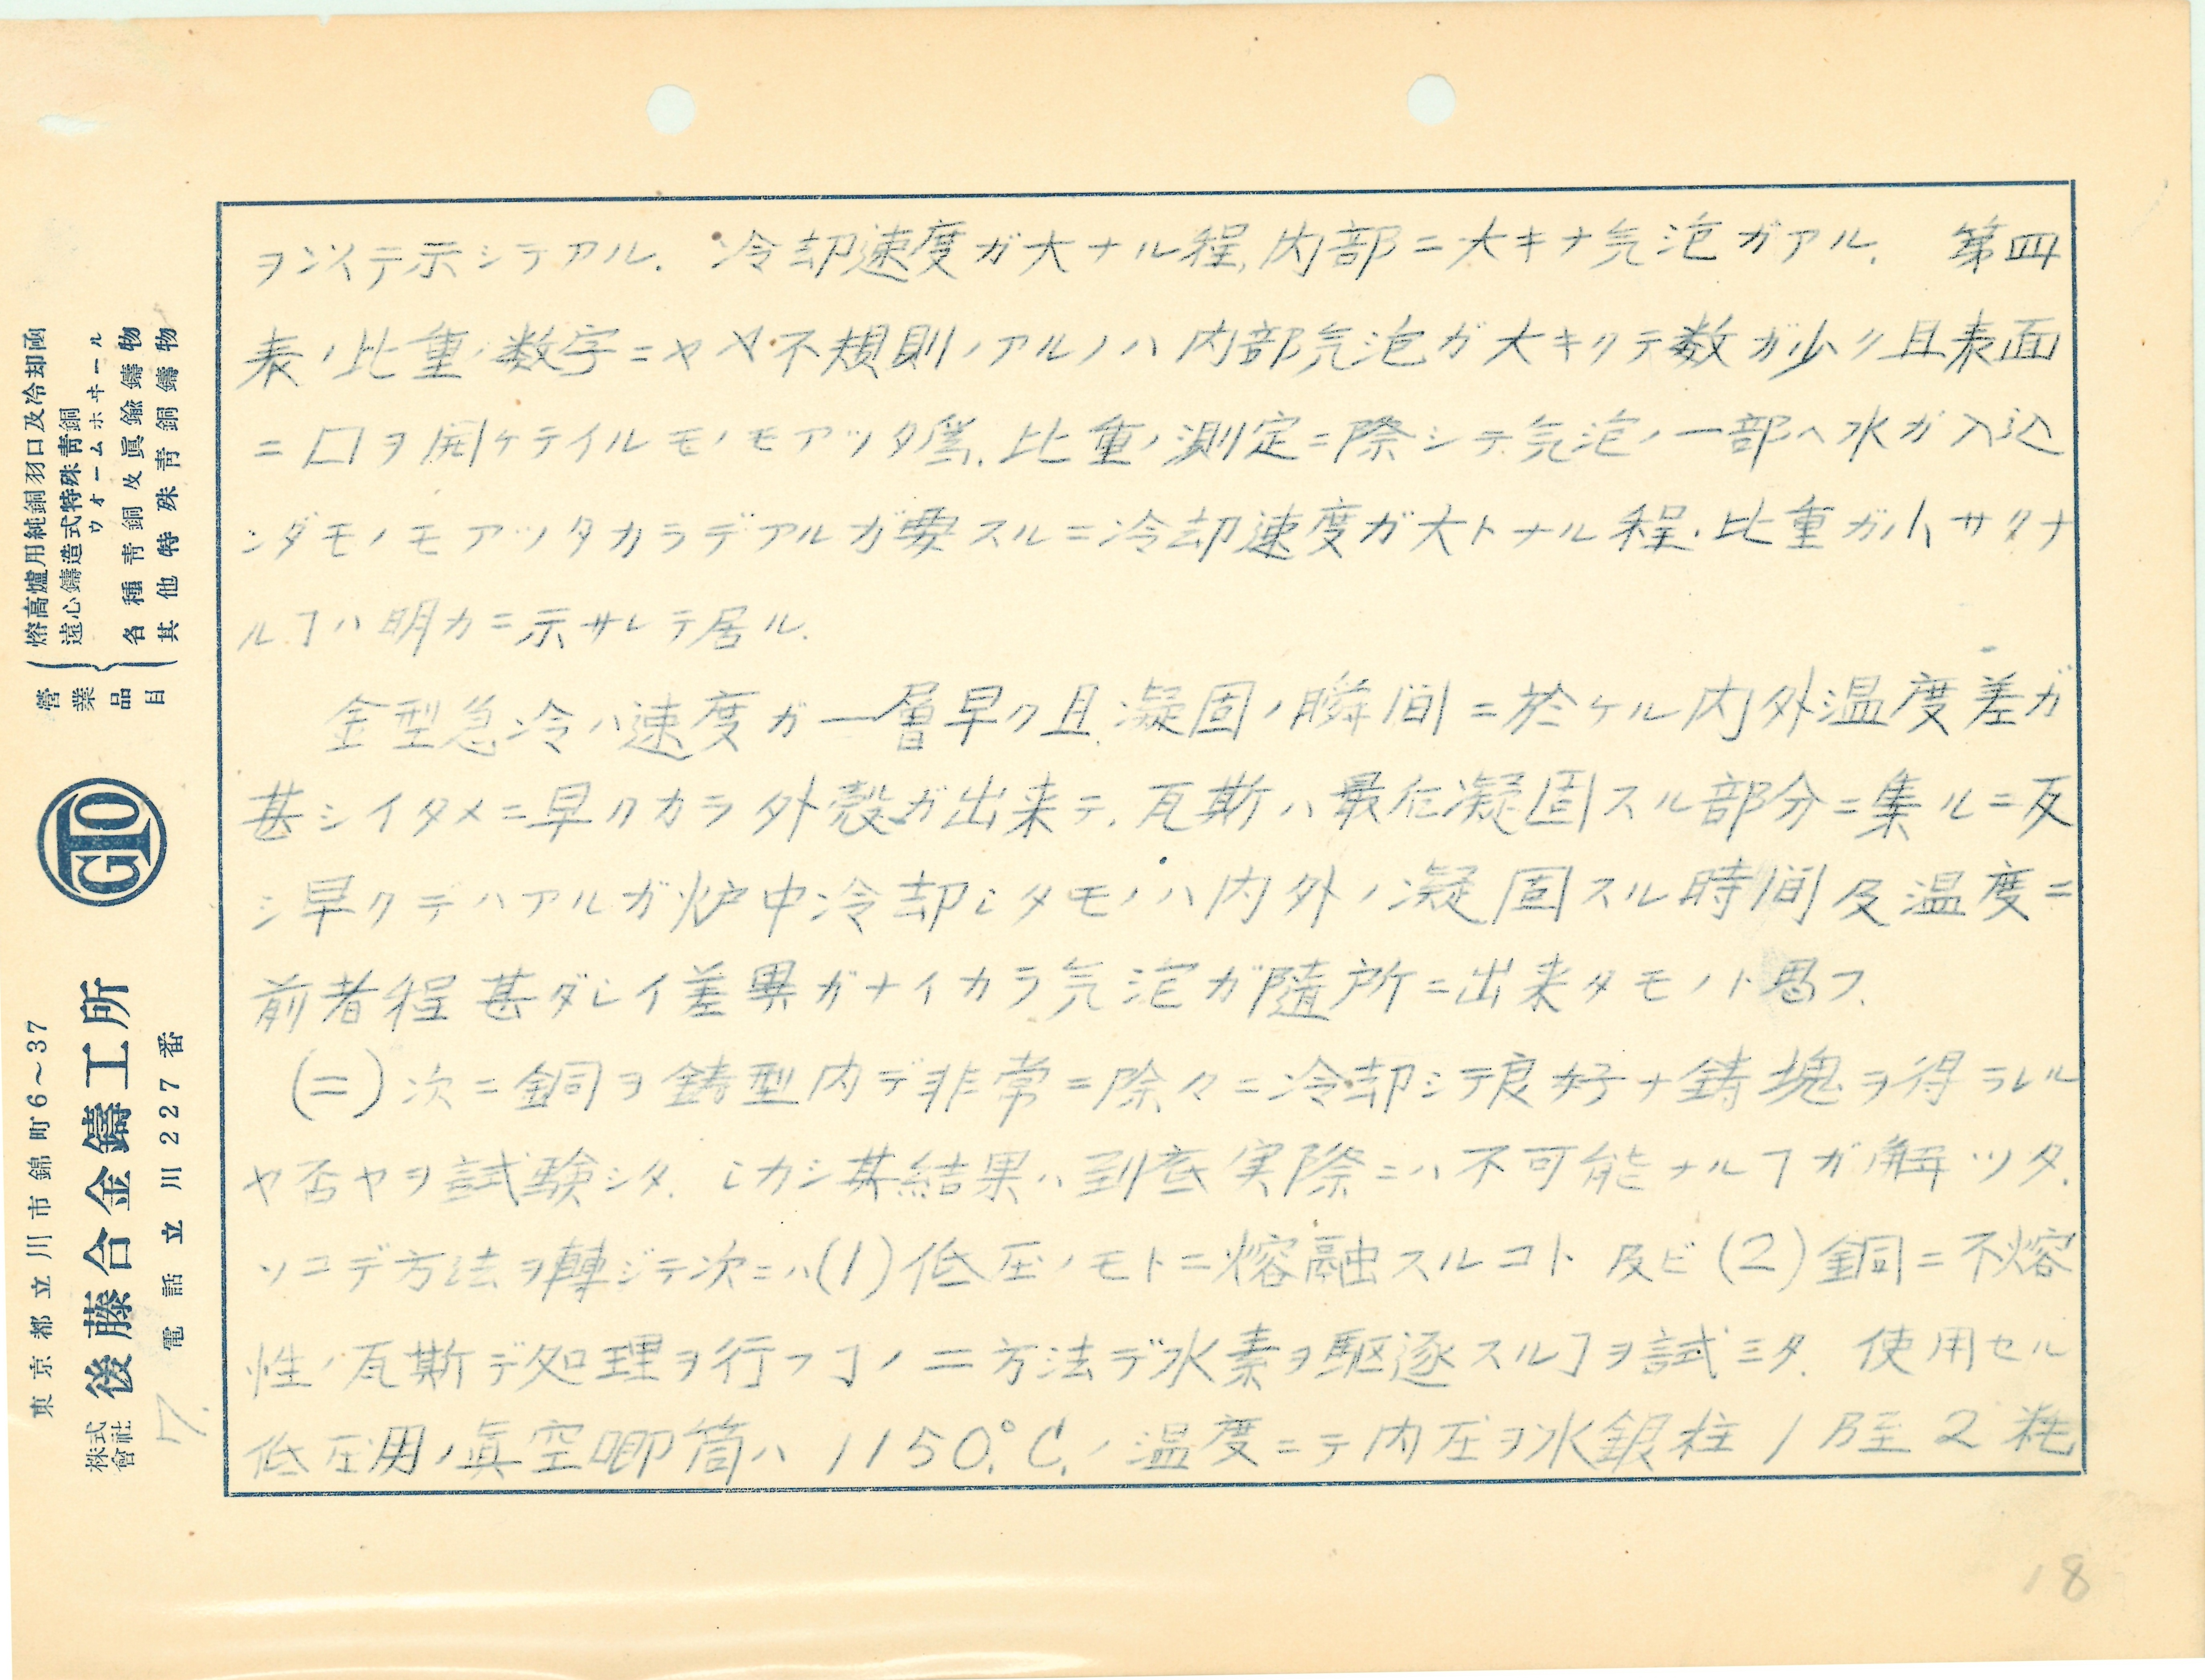 ヲ以テ示シテアル. 冷却速度ガ大ナル程,内部ニ大キナ気泡ガアル. 第四
表ノ比重ノ数字ニヤヤ不規則ノアルノハ内部気泡ガ大キクテ数ガ少ク且表面
ニ口ヲ開ケテイルモノモアッタ為.比重ノ測定ニ際シテ気泡ノ一部ヘ水ガ入込
ンダモノモアッタカラデアルガ要スルニ冷却速度ガ大トナル程.比重ガ小サクナ
ルヿハ明カニ示サレテ居ル.
金型急冷ハ速度ガ一層早ク且凝固ノ瞬間ニ於ケル内外温度差ガ
甚シイタメニ早クカラ外殻ガ出来テ.瓦斯ハ最后凝固スル部分ニ集ルニ反
シ早クデハアルガ炉中冷却シタモノハ内外ノ凝固スル時間及温度ニ
前者程甚ダシイ差異ガナイカラ気泡ガ隨所ニ出来タモノト思フ.
(ニ)次ニ銅ヲ鋳型内デ非常ニ除々ニ冷却シテ良好ナ鋳塊ヲ得ラレル
ヤ否ヤヲ試験シタ. シカシ其結果ハ到底実際ニハ不可能ナルヿガ解ッタ.
ソコデ方法ヲ轉ジテ次ニハ(1)低圧ノモトニ熔融スルコト及ビ(2)銅ニ不熔
性ノ瓦斯デ処理ヲ行フヿノ二方法デ水素ヲ駆逐スルヿヲ試ミタ. 使用セル
低圧用ノ眞空喞筒ハ1150°C.ノ温度ニテ内圧ヲ水銀柱1乃至2粍
18
營業品目
熔高爐用純銅羽口及冷却函
遠心鑄造式特殊靑銅
ウォームホヰール
各種靑銅及眞鍮鑄物
其他特殊靑銅鑄物
GTO
東京都立川市錦町6～37
株式會社 後藤合金鑄工所
電話立川227番
7.